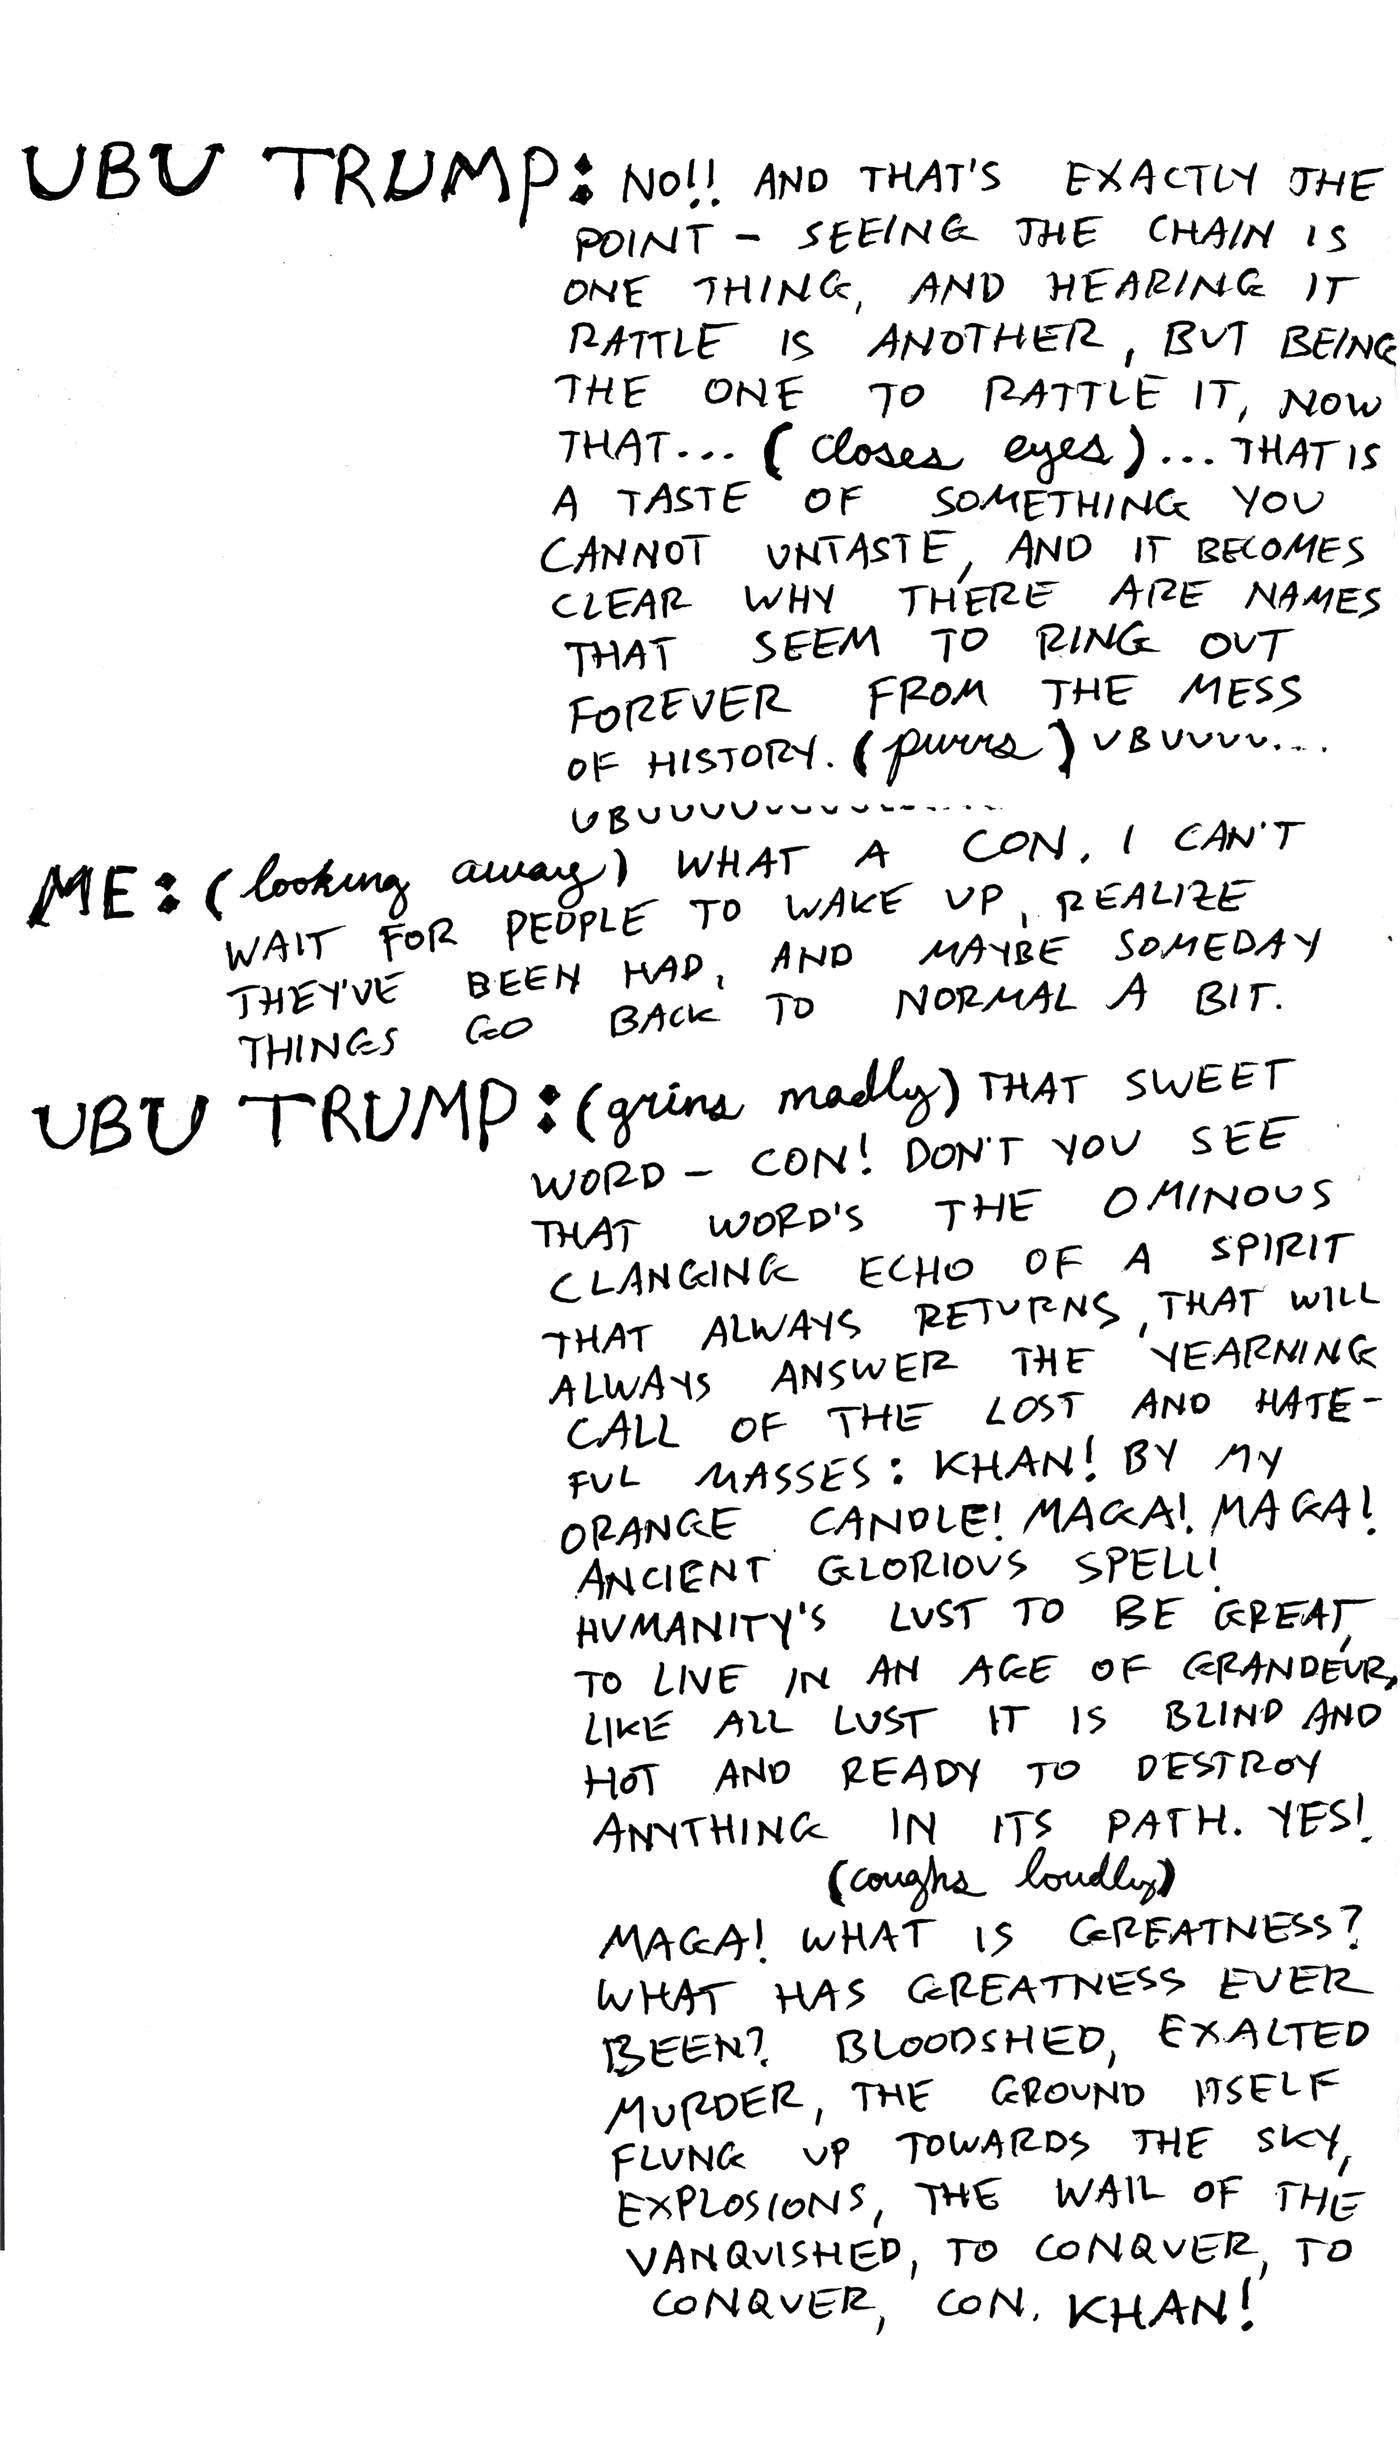 UBU TRUMP: NO!! AND THAT'S EXACTLY THE
POINT - SEEING THE CHAIN IS
ONE THING, AND HEARING IT
RATTLE IS ANOTHER, BUT BEING
THE ONE TO RATTLE IT, NOW
THAT... (closes eyes)... THAT IS
A TASTE OF SOMETHING YOU
CANNOT UNTASTE, AND IT BECOMES
CLEAR WHY THERE ARE NAMES
THAT SEEM TO RING OUT
FOREVER FROM THE MESS
OF HISTORY. (purrs) UBUUUU...
UBUUUUUUUUUUU.......
ME: (looking away) WHAT A CON. I CAN'T
WAIT FOR PEOPLE TO WAKE UP, REALIZE
THEY'VE BEEN HAD, AND MAYBE SOMEDAY
THINGS GO BACK TO NORMAL A BIT.
UBU TRUMP: (grins madly) THAT SWEET
WORD - CON! DON'T YOU SEE
THAT WORD'S THE OMINOUS
CLANGING ECHO OF A SPIRIT
THAT ALWAYS RETURNS, THAT WILL
ALWAYS ANSWER THE YEARNING
CALL OF THE LOST AND HATE-
FUL MASSES: KHAN! BY MY
ORANGE CANDLE! MAGA! MAGA!
ANCIENT GLORIOUS SPELL!
HUMANITY'S LUST TO BE GREAT,
TO LIVE IN AN AGE OF GRANDEUR,
LIKE ALL LUST IT IS BLIND AND
HOT AND READY TO DESTROY
ANYTHING IN ITS PATH. YES!
(coughs loudly)
MAGA! WHAT IS GREATNESS?
WHAT HAS GREATNESS EVER
BEEN? BLOODSHED, EXALTED
MURDER, THE GROUND ITSELF
FLUNG UP TOWARDS THE SKY,
EXPLOSIONS, THE WAIL OF THE
VANQUISHED, TO CONQUER, TO
CONQUER, CON. KHAN!